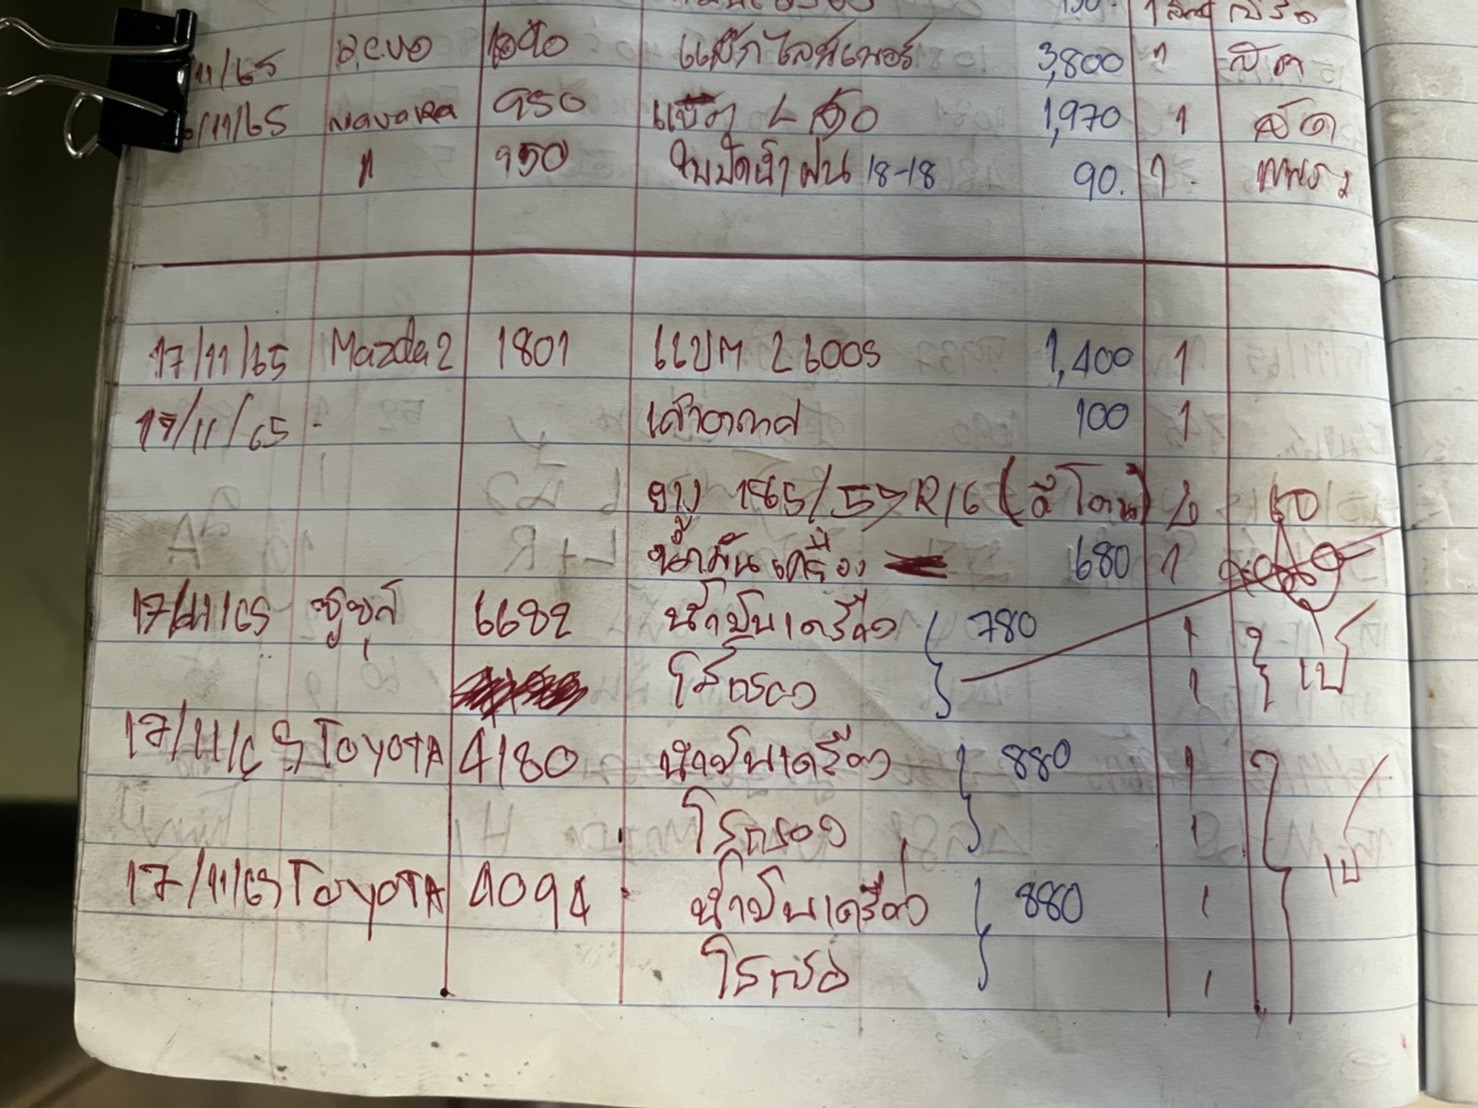 11/65 revo แม็กไลน์เนอร์ 3,800 1
/11/65 Navara 950 แบต L 1,970 1 สด
" 950 ใบปัดน้ำฝน 18-18 90. 1
17/11/65 Mazda 2 1801 แบต 2600S 1,400 1
17/11/65 - เต้าอากาศ 100 1
ยาง R16 (ดีโตน)
น้ำมันเครื่อง 680 1
17/11/65 ซูซุกิ 6682 น้ำมันเครื่อง 780 1
ไส้กรอง 1 เป้
17/11/65 TOYOTA 4180 น้ำมันเครื่อง 880 1
ไส้กรอง 1
17/11/65 TOYOTA 4094 น้ำมันเครื่อง 880 1 เป้
ไส้กรอง 1